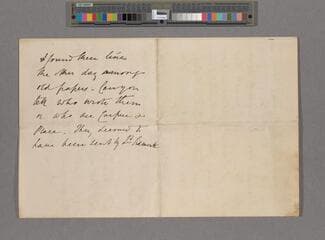 I found these lines
the other day among
old papers - Can you
tell who wrote them
or who are &
Peace. They seemed to
have been sent by